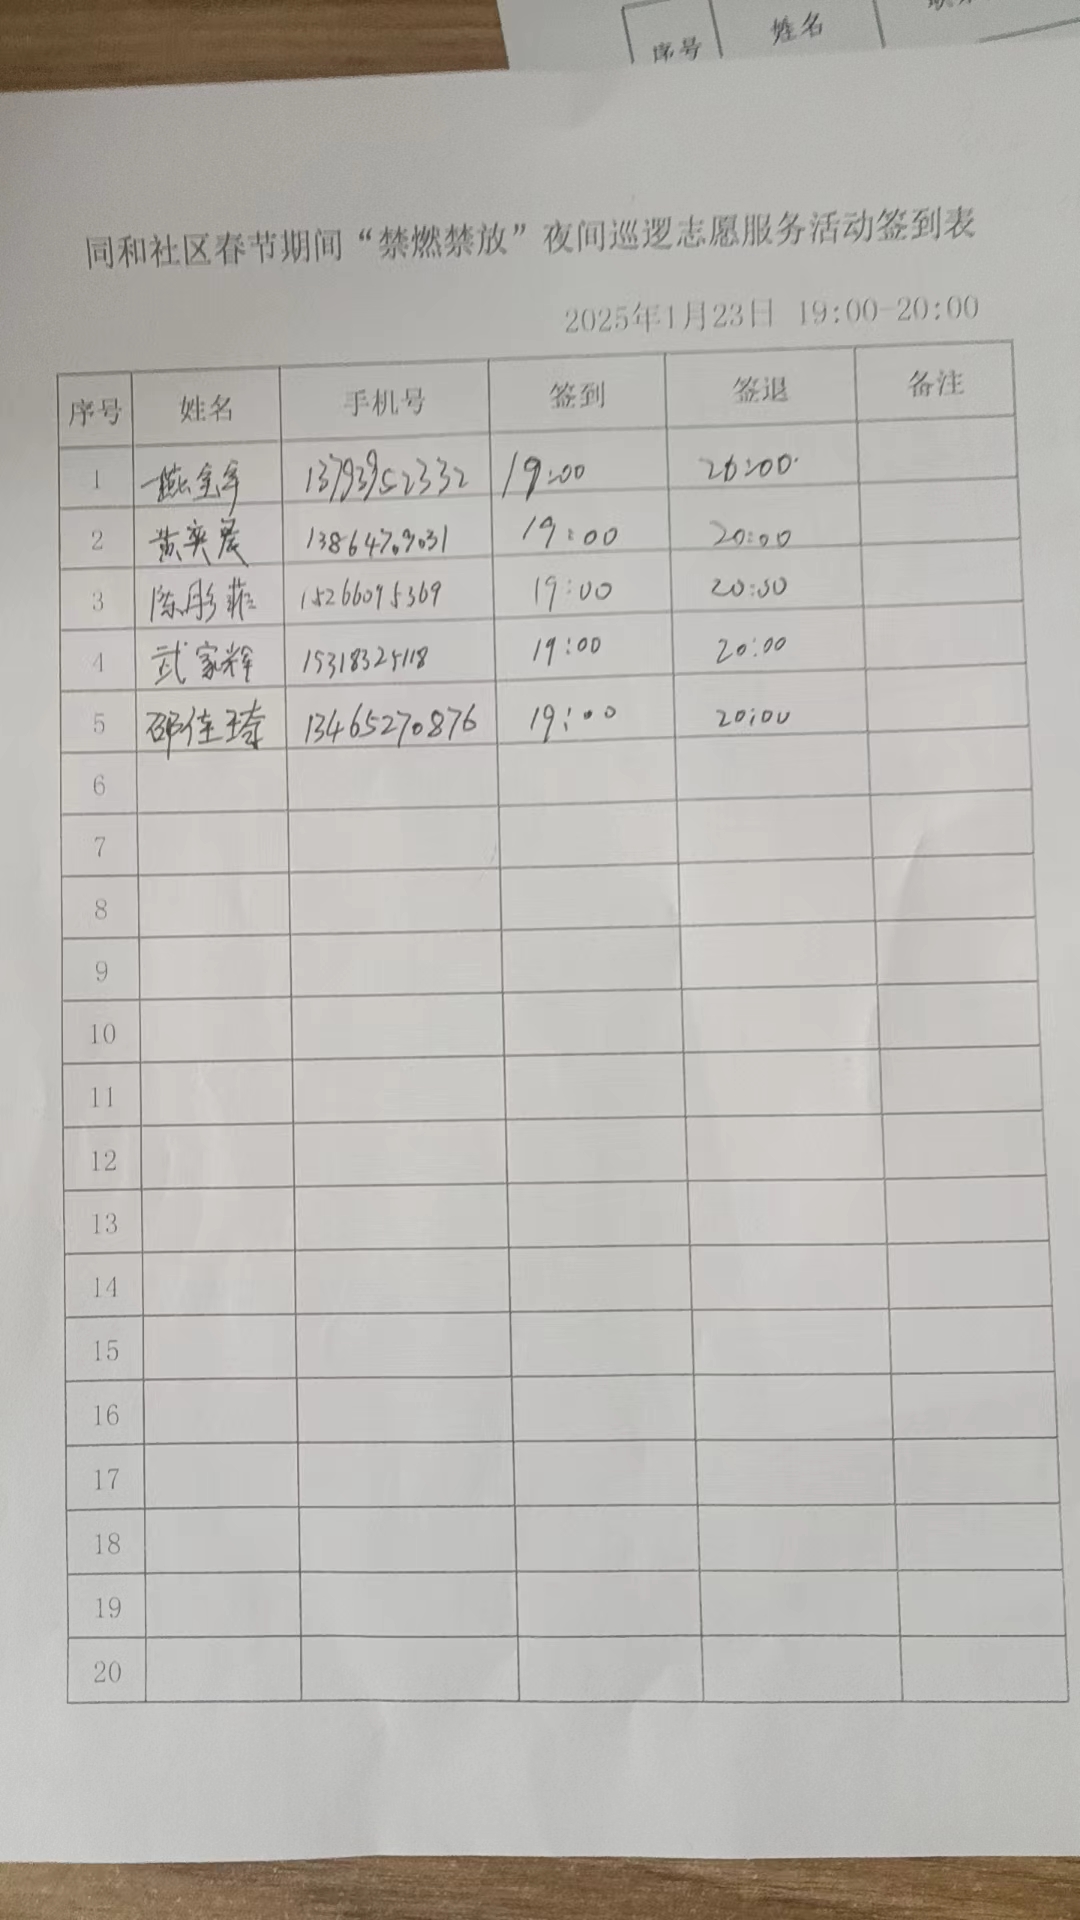 序号 姓名
同和社区春节期间“禁燃禁放”夜间巡逻志愿服务活动签到表
2025年1月23日 19:00-20:00
序号 姓名 手机号 签到 签退 备注
1 13793952332 19:00 20:00
2 黄奕晨 13864709031 19:00 20:00
3 陈彤菲 15266095369 19:00 20:00
4 武家辉 15318325118 19:00 20:00
5 邵佳琦 13465270876 19:00 20:00
6
7
8
9
10
11
12
13
14
15
16
17
18
19
20